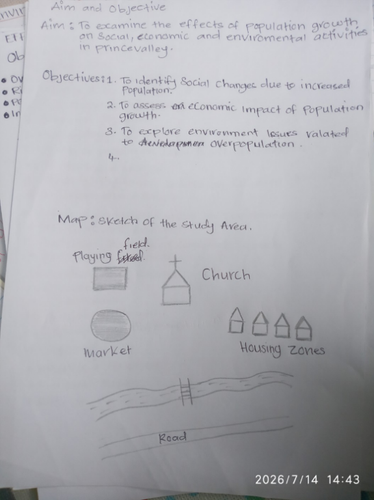 Aim and Objective
Aim: To examine the effects of population growth
on Social, economic and enviromental activities
in princevalley.
Objectives: 1. To identify Social changes due to increased
Population.
2. To assess economic impact of population
growth.
3. To explore environment issues valated
to overpopulation.
4.
Map: Sketch of the Study Area.
field.
Playing
Church
Market
Housing Zones
Road
2026/7/14 14:43